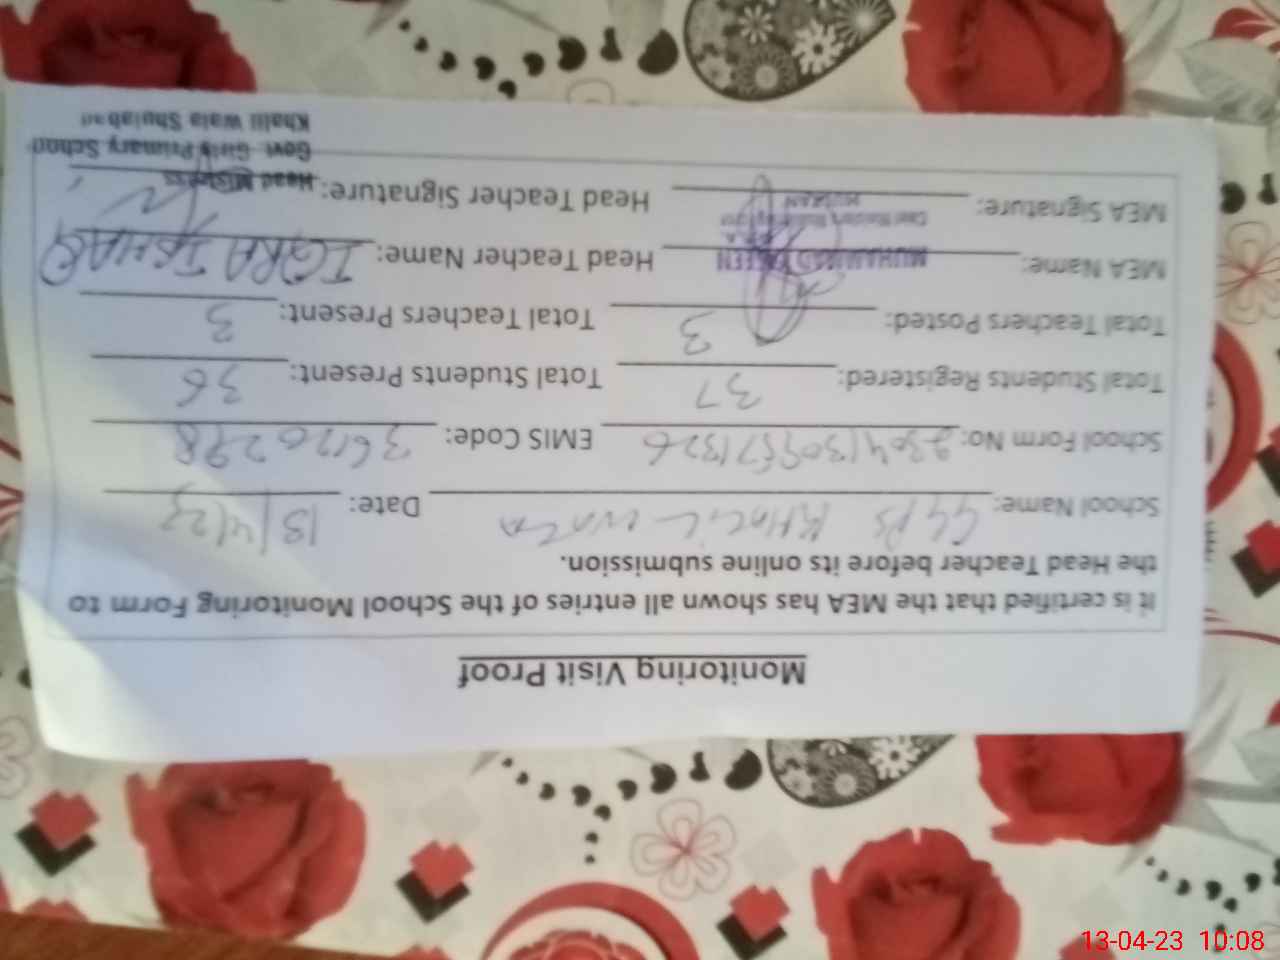 Monitoring Visit Proof
It is certified that the MEA has shown all entries of the School Monitoring Form to
the Head Teacher before its online submission.
School Name: GGPS Khalil Wala Date: 13/4/23
School Form No: EMIS Code: 36120298
Total Students Registered: 37 Total Students Present: 36
Total Teachers Posted: 3 Total Teachers Present: 3
MEA Name: MUHAMMAD Head Teacher Name: IQRA ISHAQ
MEA Signature: Head Teacher Signature:
Head Mistress
Govt. Girls Primary School
Khalil Wala Shujabad
13-04-23 10:08